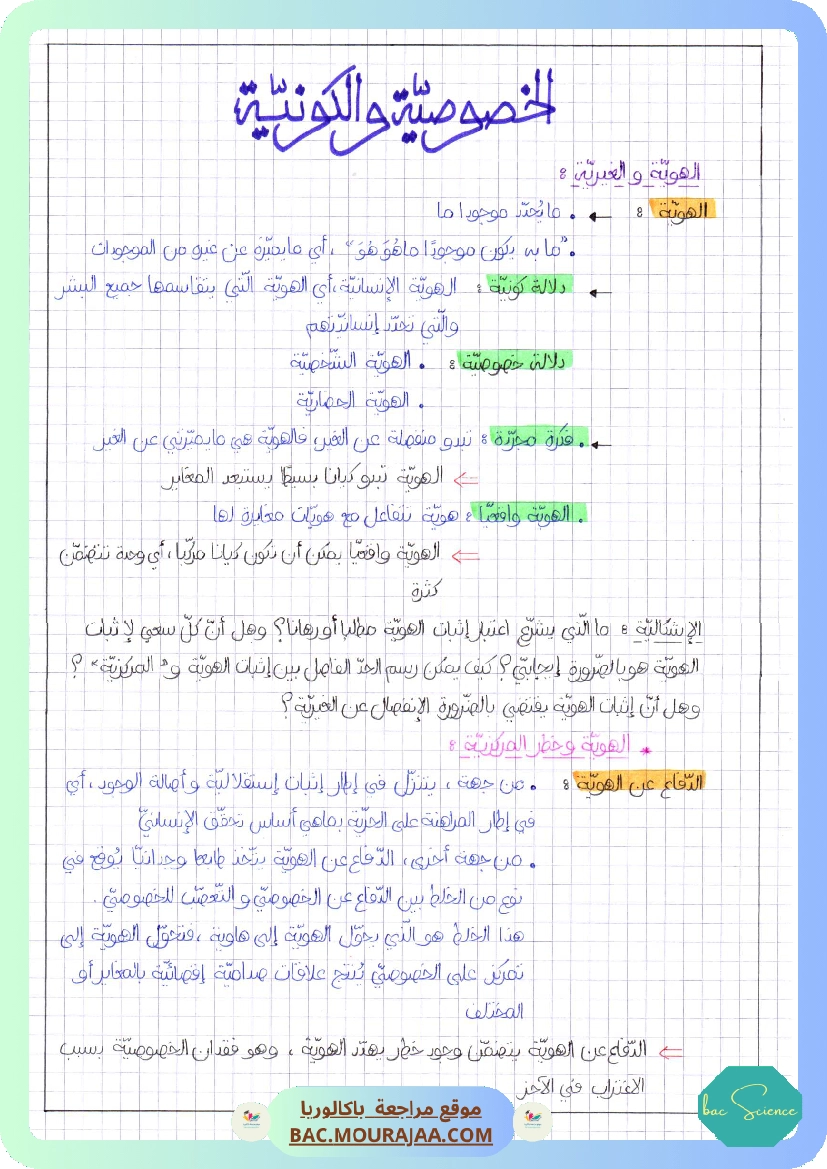 الخصوصيّة والكونيّة
الهويّة و الغيريّة :
الهويّة : ← • ما يُحدّد موجودا ما
• "ما به يكون موجودًا ما هُوَ هُوَ" ، أي ما يميّزه عن غيره من الموجودات
← دلالة كونيّة : الهويّة الإنسانيّة، أي الهويّة الّتي يتقاسمها جميع البشر
والّتي تحدّد إنسانيّتهم
دلالة خصوصيّة : • الهويّة الشّخصيّة
• الهويّة الحضاريّة
← • فكرة مجرّدة : تبدو منفصلة عن الغير، فالهويّة هي ما يميّزني عن الغير
⇐ الهويّة تبدو كيانا بسيطا يستبعد المغاير
• الهويّة واقعيّا : هويّة تتفاعل مع هويّات مغايرة لها
⇐ الهويّة واقعيّا يمكن أن تكون كيانا مركّبا، أي وحدة تتضمّن
كثرة
الإشكاليّة : ما الّذي يشرّع اعتبار إثبات الهويّة مطلبا أو رهانا؟ وهل أنّ كلّ سعي لإثبات
الهويّة هو بالضّرورة إيجابيّ؟ كيف يمكن رسم الحدّ الفاصل بين إثبات الهويّة و "المركزيّة" ؟
وهل أنّ إثبات الهويّة يقتضي بالضّرورة الإنفصال عن الغيريّة؟
* الهويّة وخطر المركزيّة :
الدّفاع عن الهويّة : • من جهة ، يتنزّل في إطار إثبات إستقلاليّة وأصالة الوجود، أي
في إطار المراهنة على الحرّيّة بماهي أساس تحقّق الإنسانيّ
• من جهة أخرى، الدّفاع عن الهويّة يتّخذ طابعا وجدانيّا يُوقع في
نوع من الخلط بين الدّفاع عن الخصوصيّ و التّعصّب للخصوصيّ .
هذا الخلط هو الّذي يحوّل الهويّة إلى هاوية ، فتتحوّل الهويّة إلى
تمركز على الخصوصيّ يُنتج علاقات صداميّة إقصائيّة بالمغاير أو
المختلف
⇐ الدّفاع عن الهويّة يتضمّن وجود خطر يهدّد الهويّة ، وهو فقدان الخصوصيّة بسبب
الاغتراب في الآخر
موقع مراجعة باكالوريا
BAC.MOURAJAA.COM
bac Science